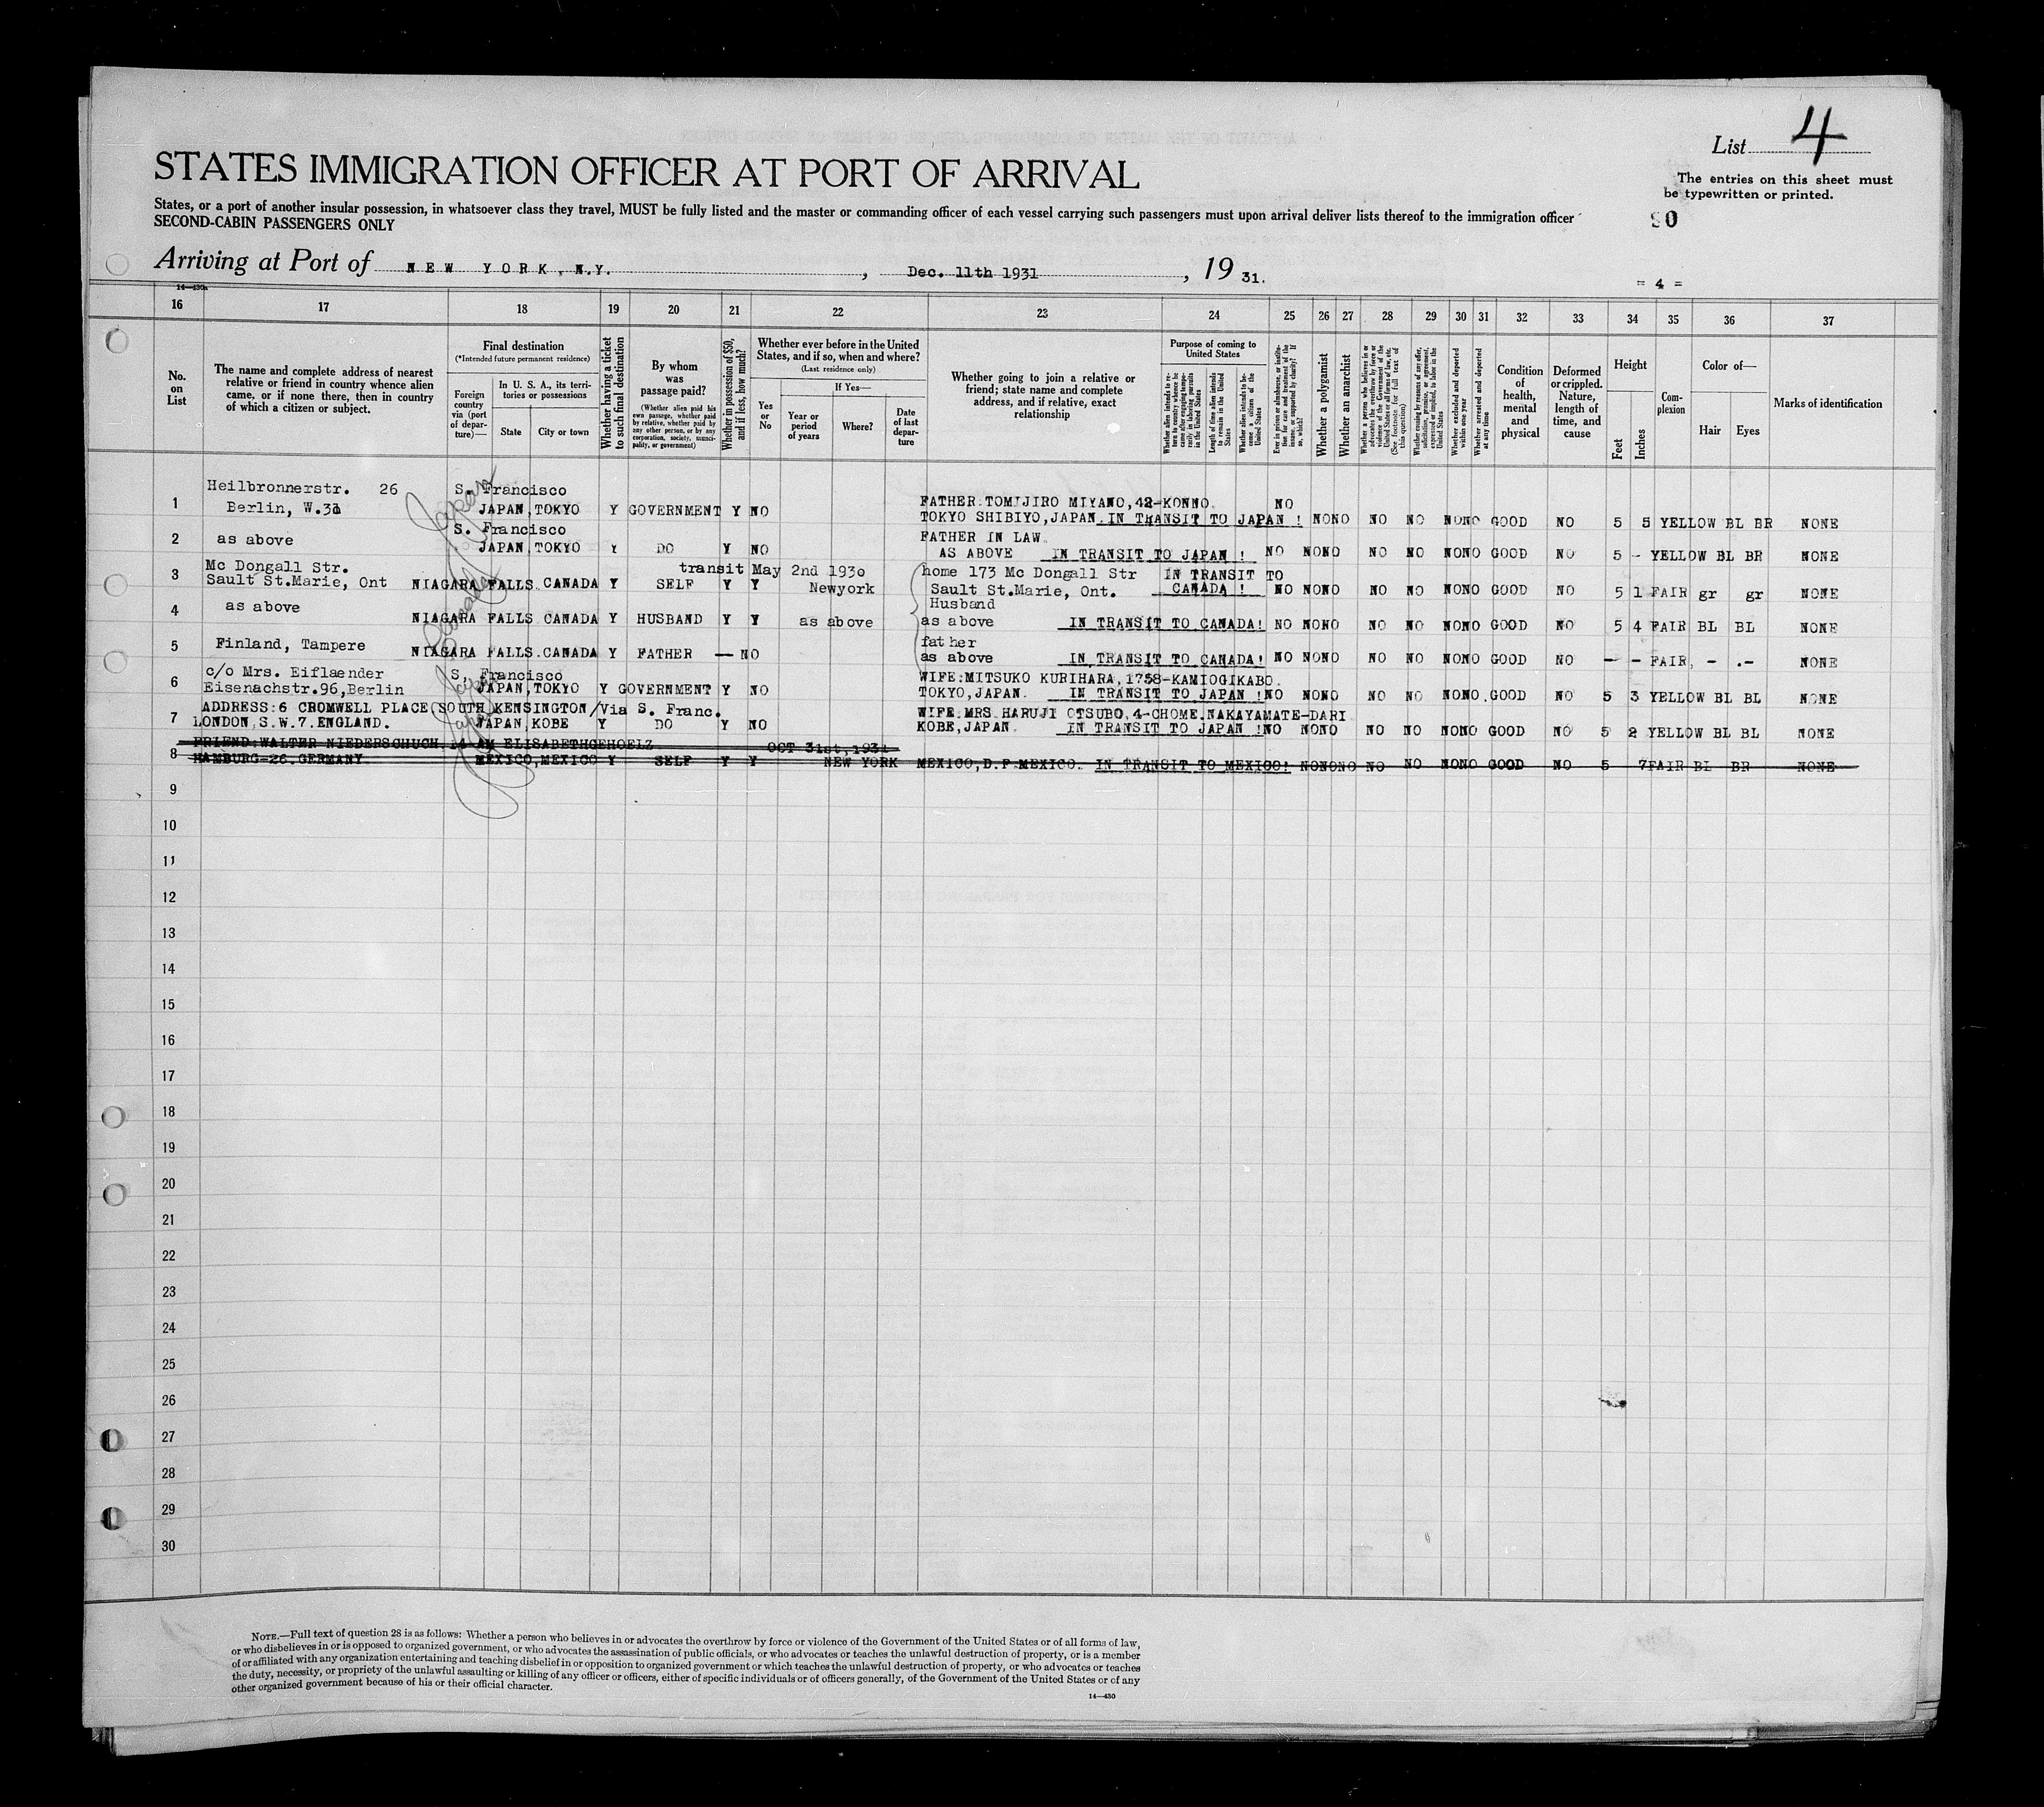 List 4
STATES IMMIGRATION OFFICER AT PORT OF ARRIVAL
The entries on this sheet must
be typewritten or printed.
States, or a port of another insular possession, in whatsoever class they travel, MUST be fully listed and the master or commanding officer of each vessel carrying such passengers must upon arrival deliver lists thereof to the immigration officer
SECOND-CABIN PASSENGERS ONLY
Arriving at Port of NEW YORK, N.Y. , Dec. 11th 1931 , 19 31.
= 4 =
14—430
16 17 18 19 20 21 22 23 24 25 26 27 28 29 30 31 32 33 34 35 36 37
No.
on
List
The name and complete address of nearest
relative or friend in country whence alien
came, or if none there, then in country
of which a citizen or subject.
Final destination
(*Intended future permanent residence)
Foreign
country
via (port
of depar-
ture)—
In U. S. A., its terri-
tories or possessions
State
City or town
Whether having a ticket
to such final destination
By whom
was
passage paid?
(Whether alien paid his
own passage, whether paid
by relative, whether paid by
any other person, or by any
corporation, society, munici-
pality, or government)
Whether in possession of $50,
and if less, how much?
Whether ever before in the United
States, and if so, when and where?
(Last residence only)
Yes
or
No
If Yes—
Year or
period
of years
Where?
Date
of last
depar-
ture
Whether going to join a relative or
friend; state name and complete
address, and if relative, exact
relationship
Purpose of coming to
United States
Length of time alien intends
to remain in the United
States
Whether alien intends to be-
come a citizen of the
United States
Whether a polygamist
Whether an anarchist
Whether excluded and deported
within one year
Whether arrested and deported
at any time
Condition
of
health,
mental
and
physical
Deformed
or crippled.
Nature,
length of
time, and
cause
Height
Feet
Inches
Com-
plexion
Color of—
Hair
Eyes
Marks of identification
Heilbronnerstr. 26 S. Francisco
1 Berlin, W. JAPAN, TOKYO Y GOVERNMENT Y NO FATHER.TOMIJIRO MIYANO, 42-KONNO NO
TOKYO SHIBIYO, JAPAN. IN TRANSIT TO JAPAN ! NONO NO NO NONO GOOD NO 5 5 YELLOW BL BR NONE
S. Francisco FATHER IN LAW
2 as above JAPAN, TOKYO Y DO Y NO AS ABOVE IN TRANSIT TO JAPAN ! NO NONO NO NO NONO GOOD NO 5 - YELLOW BL BR NONE
3 Mc Dongall Str. transit May 2nd 1930 home 173 Mc Dongall Str IN TRANSIT TO
Sault St.Marie, Ont NIAGARA FALLS. CANADA Y SELF Y Y Newyork Sault St.Marie, Ont. CANADA ! NO NONO NO NO NONO GOOD NO 5 1 FAIR gr gr NONE
4 as above Husband
NIAGARA FALLS CANADA Y HUSBAND Y Y as above as above IN TRANSIT TO CANADA! NO NONO NO NO NONO GOOD NO 5 4 FAIR BL BL NONE
5 Finland, Tampere father
NIAGARA FALLS.CANADA Y FATHER — NO as above IN TRANSIT TO CANADA! NO NONO NO NO NONO GOOD NO — - FAIR, - .- NONE
c/o Mrs. Eiflaender S, Francisco WIFE:MITSUKO KURIHARA, 1758-KAMIOGIKABO
6 Eisenachstr.96,Berlin JAPAN, TOKYO Y GOVERNMENT Y NO TOKYO, JAPAN. IN TRANSIT TO JAPAN ! NO NONO NO NO NONO.GOOD NO 5 3 YELLOW BL BL NONE
ADDRESS:6 CROMWELL PLACE(SOUTH KENSINGTON/Via S. Franc. WIFE.MRS HARUJI OTSUBO, 4-CHOME.NAKAYAMATE-DARI
7 LONDON, S.W.7. ENGLAND. JAPAN, KOBE Y DO Y NO KOBE, JAPAN. IN TRANSIT TO JAPAN !NO NONO NO NO NONO GOOD NO 5 2 YELLOW BL BL NONE
FRIEND:WALTER NIEDERSCHUCH. 14 AM ELISABETHGEHOELZ OCT 31st, 1931
8 HAMBURG-26.GERMANY MEXICO, MEXICO Y SELF Y Y NEW YORK MEXICO, D.F.MEXICO. IN TRANSIT TO MEXICO! NONONO NO NO NONO GOOD NO 5 7 FAIR BL BR NONE
Japan
Canada
Japan
9
10
11
12
13
14
15
16
17
18
19
20
21
22
23
24
25
26
27
28
29
30
NOTE.—Full text of question 28 is as follows: Whether a person who believes in or advocates the overthrow by force or violence of the Government of the United States or of all forms of law,
or who disbelieves in or is opposed to organized government, or who advocates the assassination of public officials, or who advocates or teaches the unlawful destruction of property, or is a member
of or affiliated with any organization entertaining and teaching disbelief in or opposition to organized government or which teaches the unlawful destruction of property, or who advocates or teaches
the duty, necessity, or propriety of the unlawful assaulting or killing of any officer or officers, either of specific individuals or of officers generally, of the Government of the United States or of any
other organized government because of his or their official character.
14—430